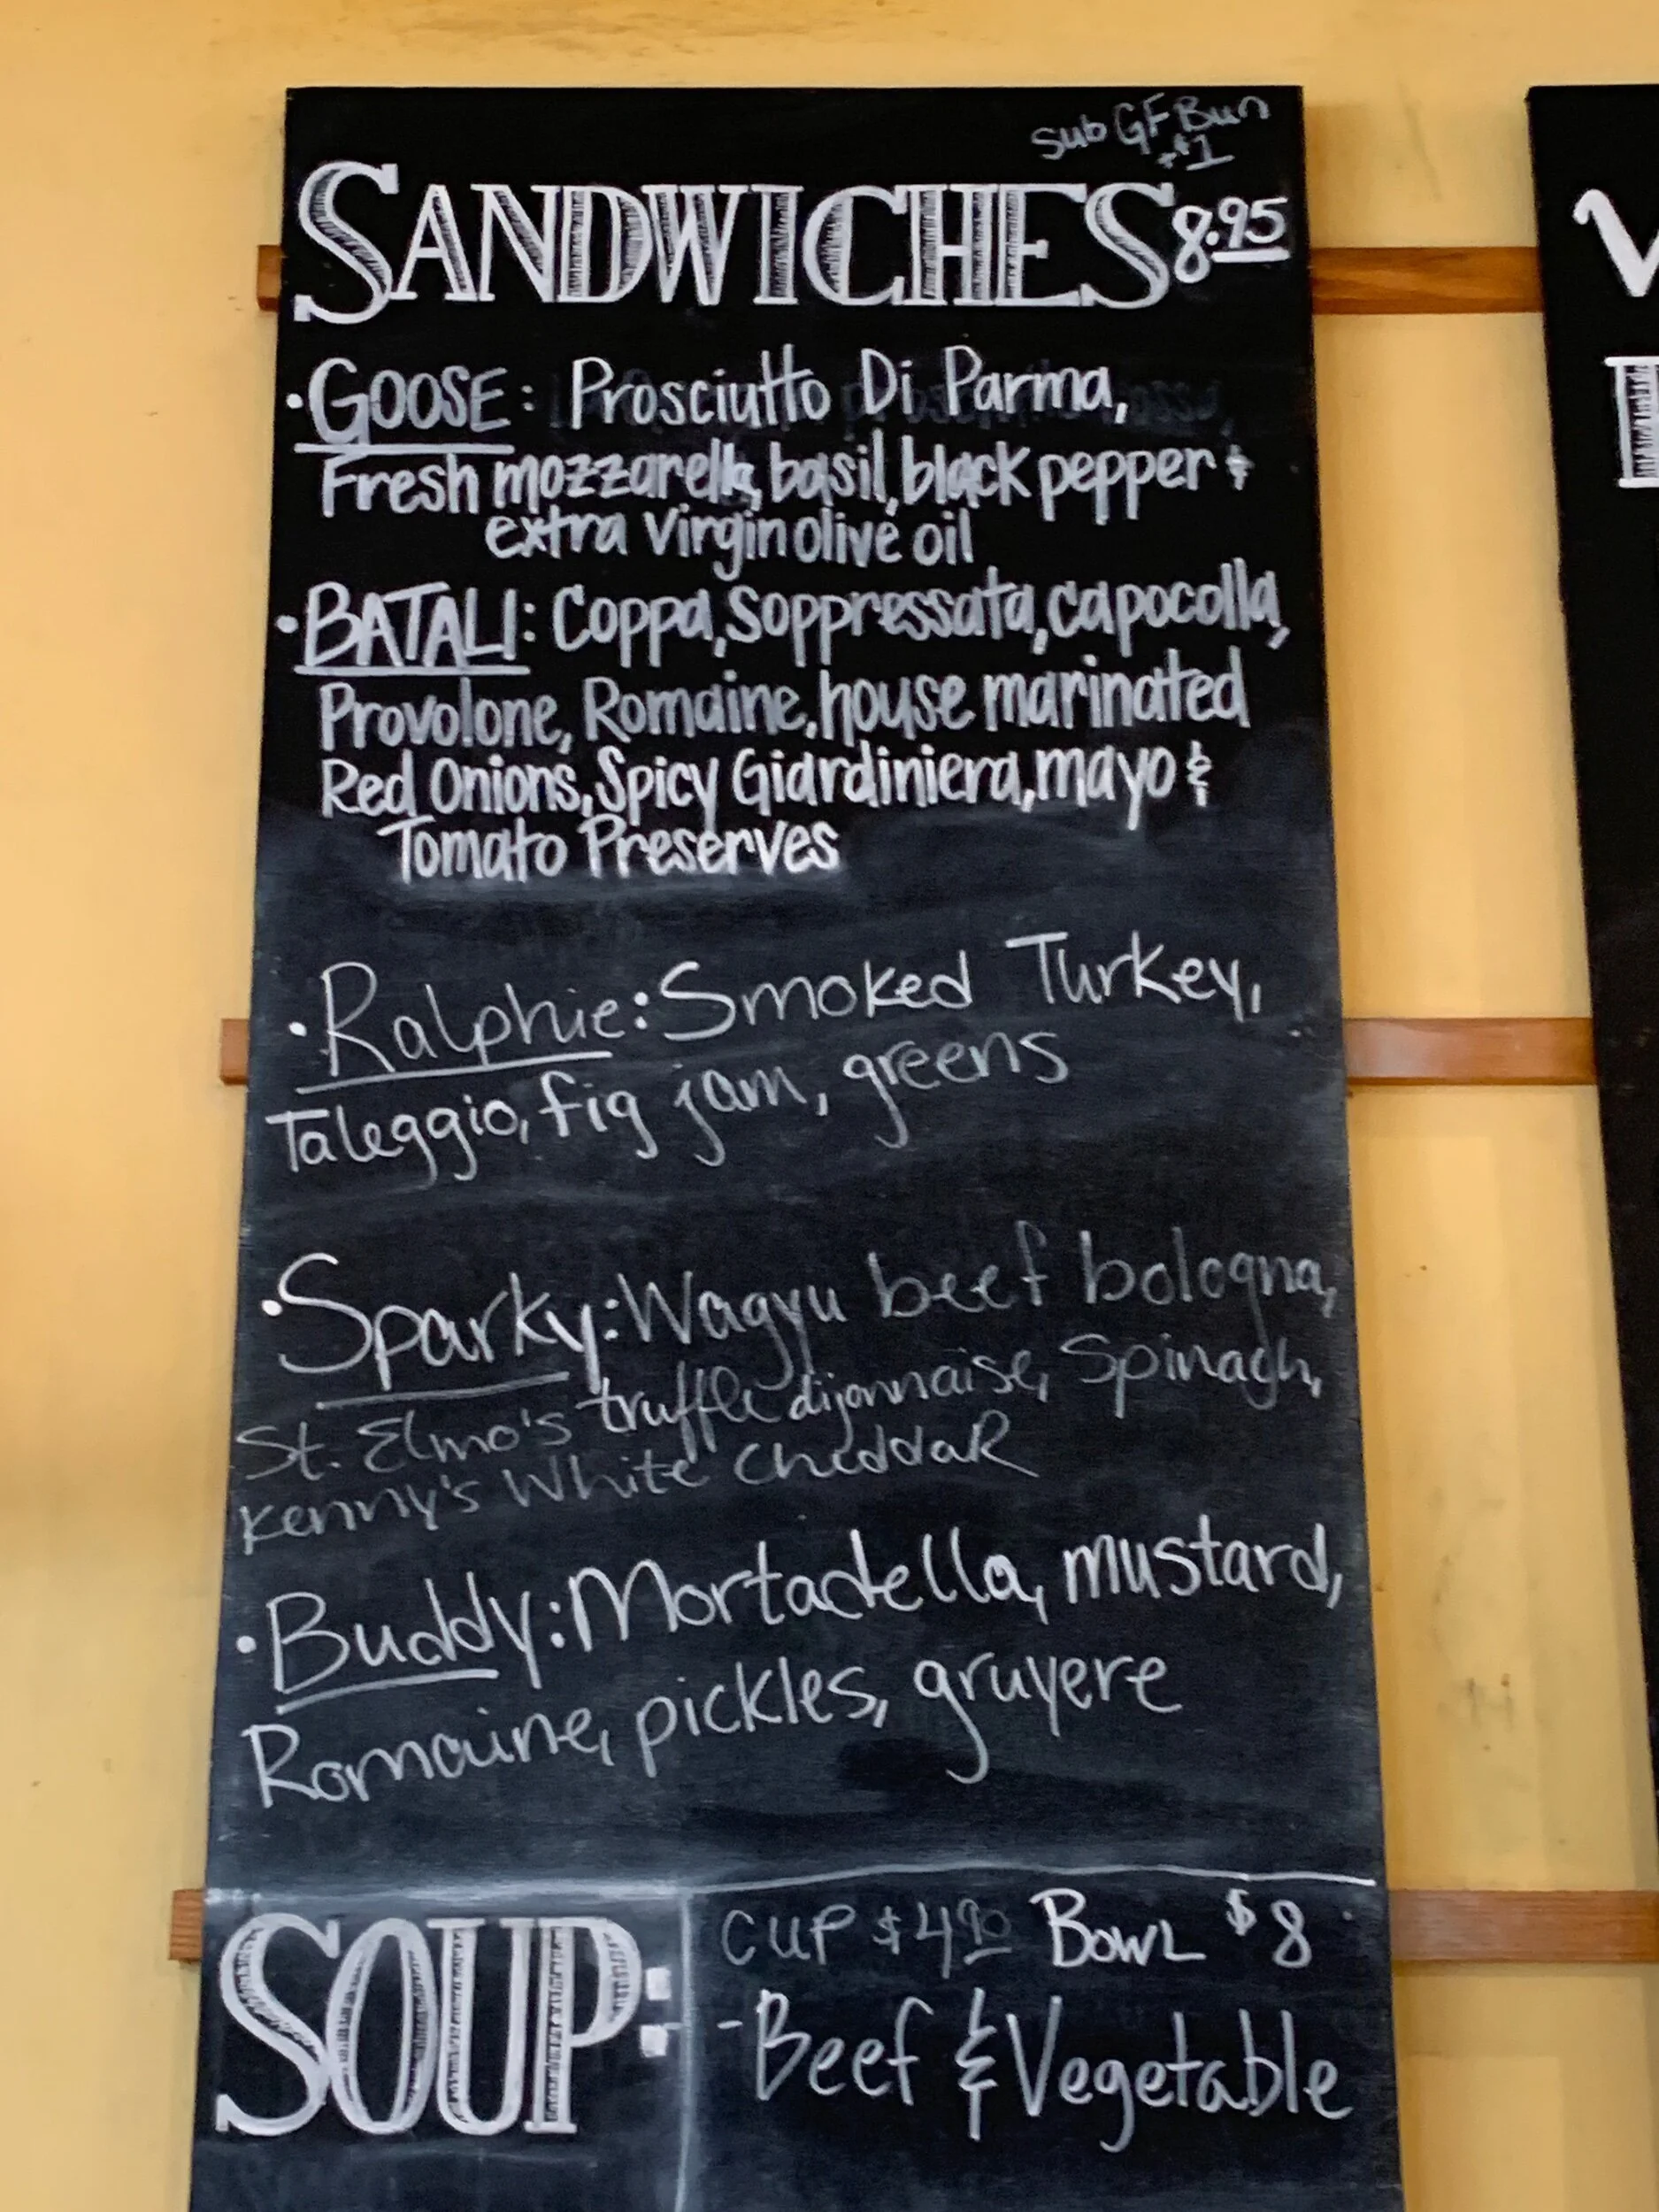 sub GF Bun
+$1
SANDWICHES 8.95
• GOOSE: Prosciutto Di Parma,
Fresh mozzarella, basil, black pepper &
extra virgin olive oil
• BATALI: Coppa, Soppressata, capocolla,
Provolone, Romaine, house marinated
Red Onions, Spicy Giardiniera, mayo &
Tomato Preserves
• Ralphie: Smoked Turkey,
Taleggio, fig jam, greens
• Sparky: Wagyu beef bologna,
St. Elmo's truffle dijonnaise, Spinach,
Kenny's White Cheddar
• Buddy: Mortadella, mustard,
Romaine, pickles, gruyere
SOUP: CUP $4.90 BOWL $8
- Beef & Vegetable